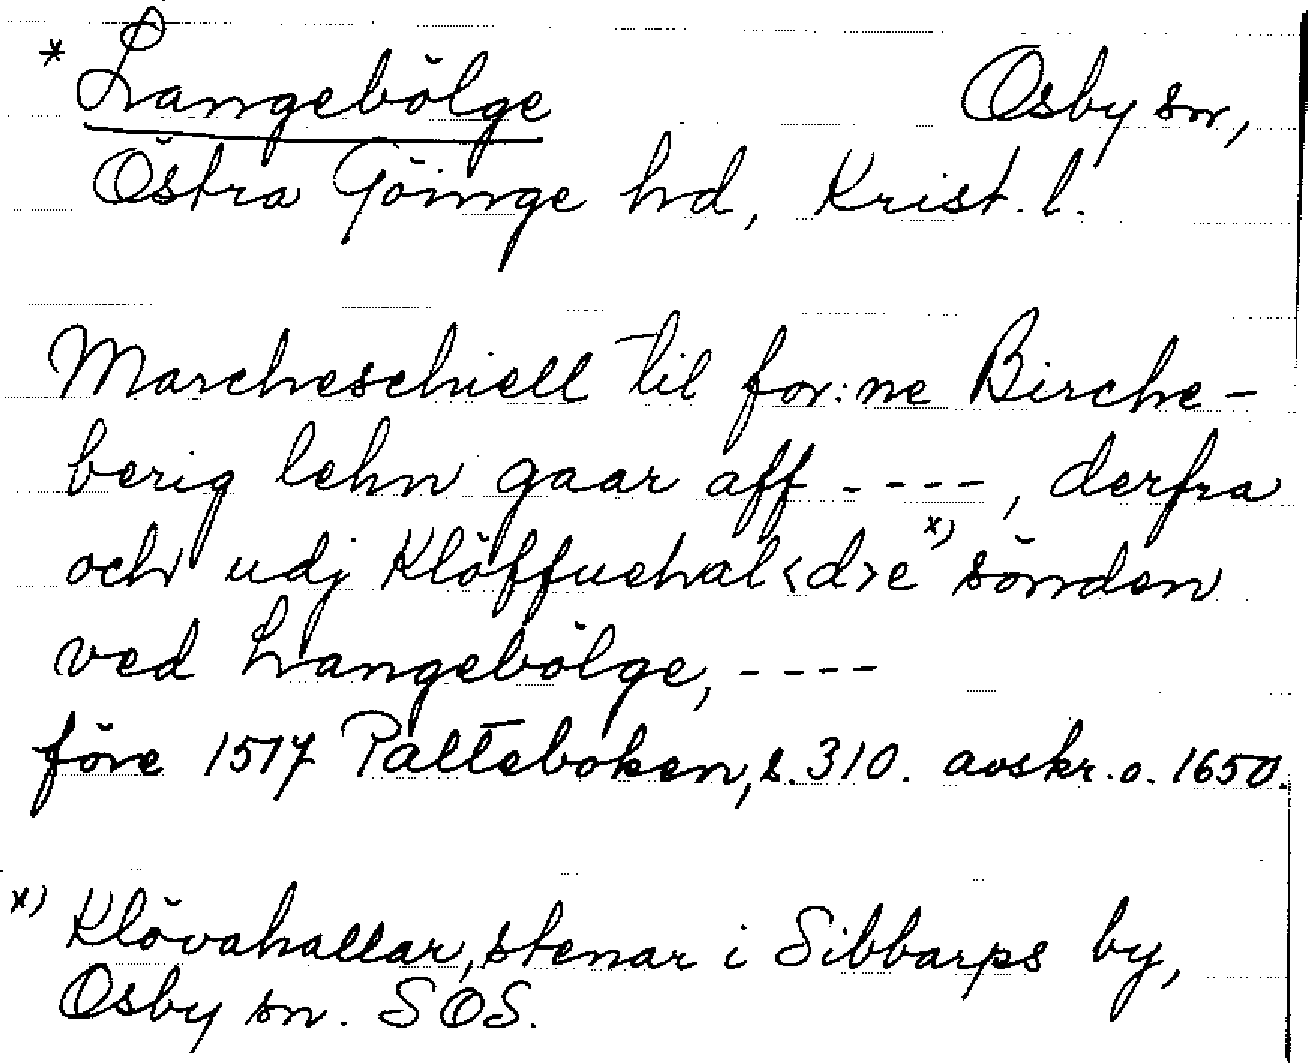 * Langebölge Osby sn,
Östra Göinge hd, Krist. l.
Marcheschiell til for:ne Birche-
berig lehn gaar aff ----, derfra
och udj Klöffuehal<d>e x) sönden
ved Langebölge, ----
före 1517 Palteboken, s. 310. avskr. o. 1650.
x) Klövahallar, stenar i Sibbarps by,
Osby sn. SOS.